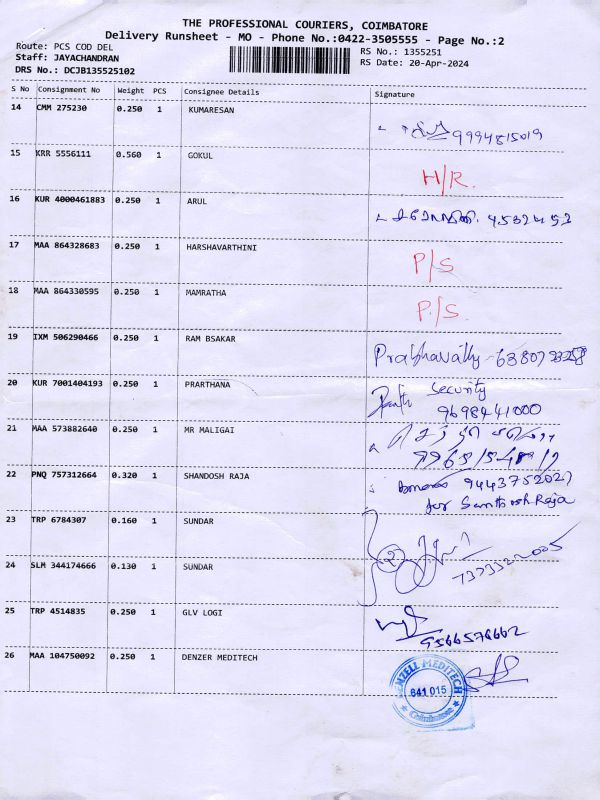 THE PROFESSIONAL COURIERS, COIMBATORE
Delivery Runsheet - MO - Phone No.:0422-3505555 - Page No.:2
Route: PCS COD DEL RS No.: 1355251
Staff: JAYACHANDRAN RS Date: 20-Apr-2024
DRS No.: DCJB135525102
S No Consignment No Weight PCS Consignee Details Signature
14 CMM 275230 0.250 1 KUMARESAN
9994815019
15 KRR 5556111 0.560 1 GOKUL
H/R.
16 KUR 4000461883 0.250 1 ARUL
17 MAA 864328683 0.250 1 HARSHAVARTHINI
P/S
18 MAA 864330595 0.250 1 MAMRATHA
P/S.
19 IXM 506290466 0.250 1 RAM BSAKAR
Prabhavathy
20 KUR 7001404193 0.250 1 PRARTHANA
Security
9698441000
21 MAA 573882640 0.250 1 MR MALIGAI
22 PNQ 757312664 0.320 1 SHANDOSH RAJA
9443752027
for Santhosh Raja
23 TRP 6784307 0.160 1 SUNDAR
24 SLM 344174666 0.130 1 SUNDAR
7373322005
25 TRP 4514835 0.250 1 GLV LOGI
9566576662
26 MAA 104750092 0.250 1 DENZER MEDITECH
DENZELL MEDITECH
641 015
Coimbatore